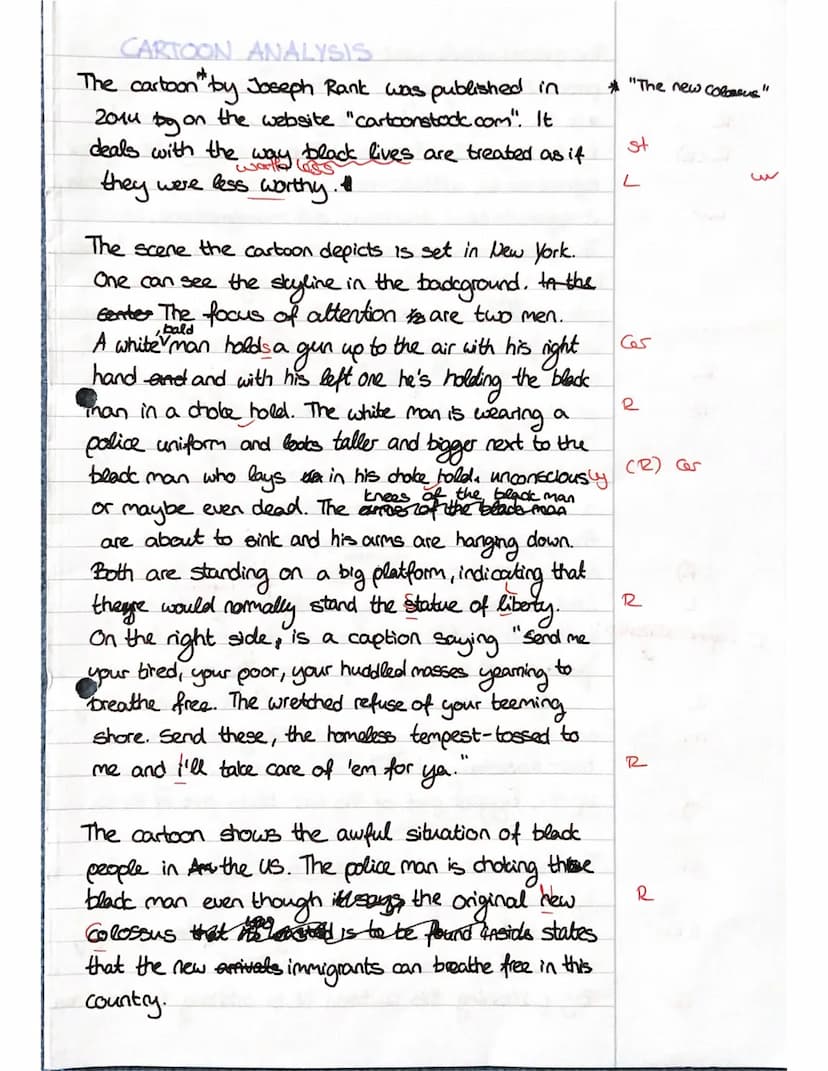 CARTOON ANALYSIS
The cartoon* by Joseph Rank was published in * "The new Colossus"
2014 by on the website "cartoonstock.com". It
deals with the way black lives are treated as if st
worth less
they were less worthy. L w
The scene the cartoon depicts is set in New York.
One can see the skyline in the background. In the
center The focus of attention is are two men.
, bald
A white man holds a gun up to the air with his right Gr
hand and and with his left one he's holding the black
man in a choke hold. The white man is wearing a R
police uniform and looks taller and bigger next to the
black man who lays in his choke hold. unconsciously (R) Gr
knees of the black man
or maybe even dead. The arms of the black man
are about to sink and his arms are hanging down.
Both are standing on a big platform, indicating that
there would normally stand the Statue of liberty. R
On the right side, is a caption saying "Send me
your tired, your poor, your huddled masses yearning to
breathe free. The wretched refuse of your teeming
shore. Send these, the homeless tempest-tossed to
me and i'll take care of 'em for ya." R
The cartoon shows the awful situation of black
people in the US. The police man is choking the
black man even though it says the original New R
Colossus that is to be found inside states
that the new arrivals immigrants can breathe free in this
country.